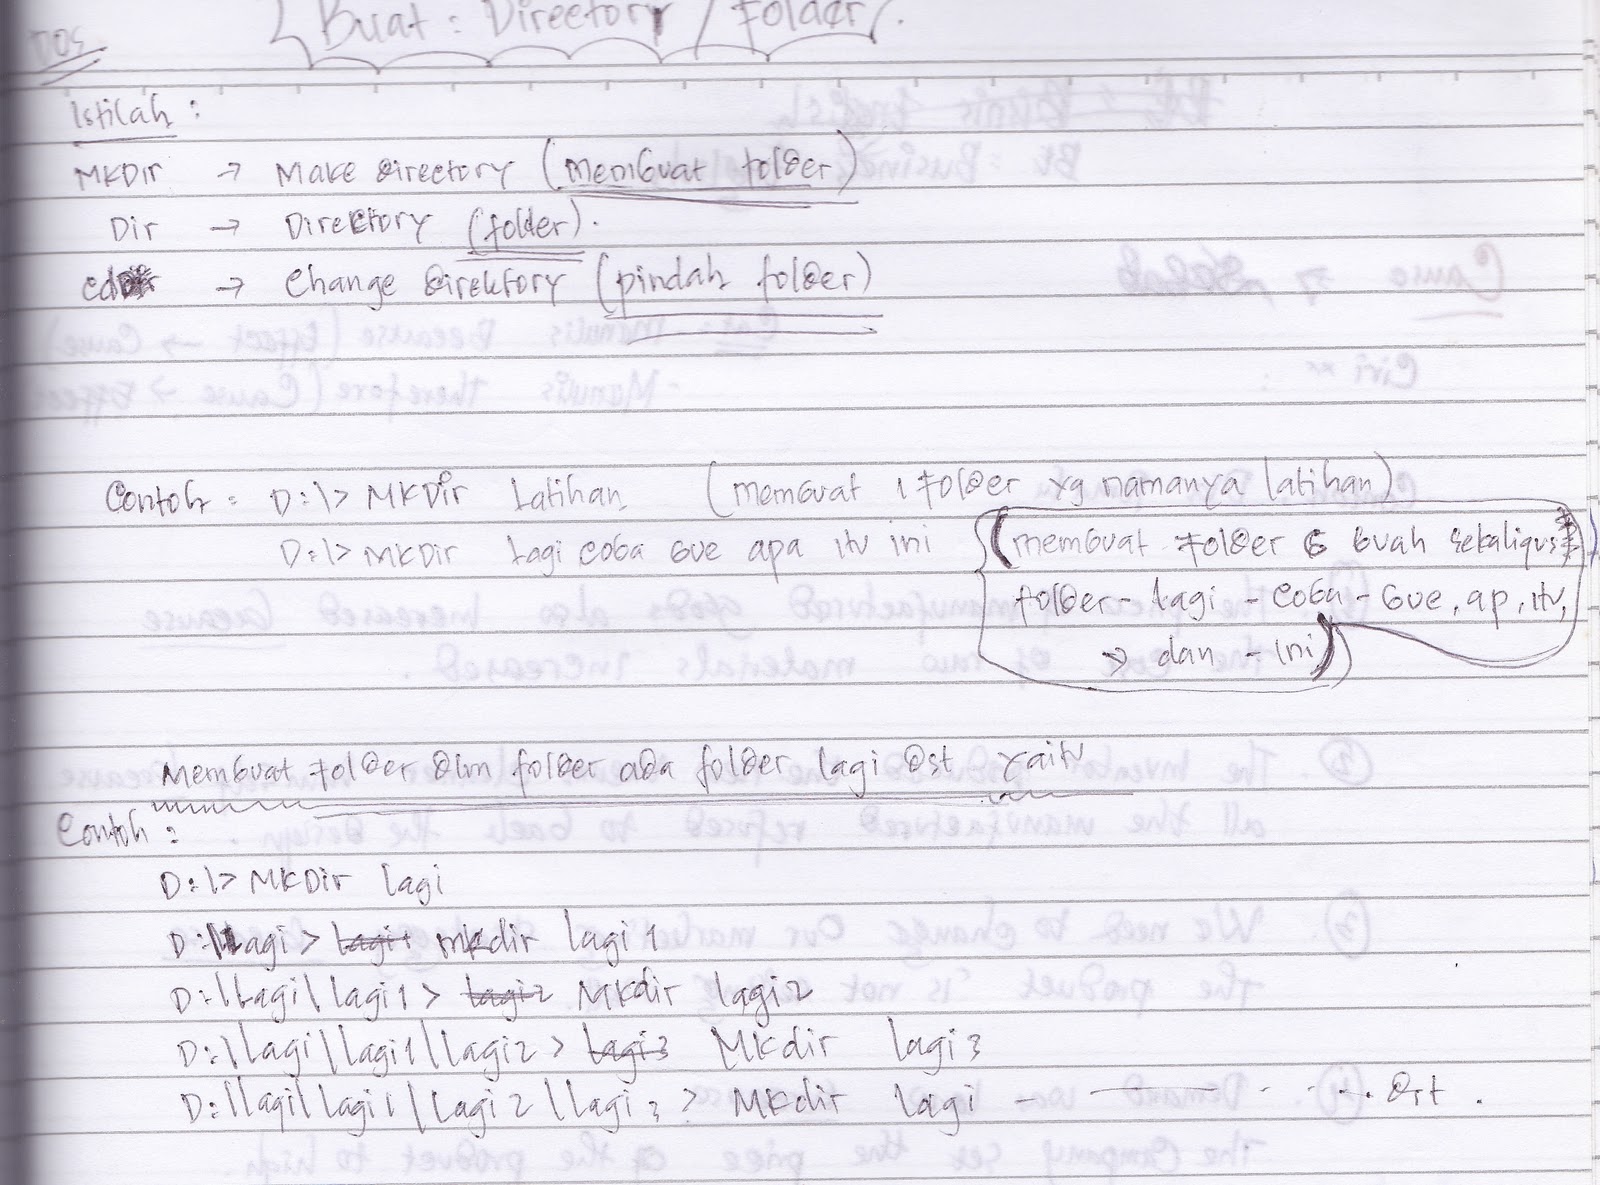 DOS
Buat : Directory / Folder.
Istilah :
MKDir → Make Directory (membuat folder)
Dir → Direktory (folder).
cd → Change Direktory (pindah folder)
Contoh : D:\> MKDir Latihan (membuat 1 folder yg namanya latihan)
D:\> MKDir Lagi coba gue apa itu ini (membuat folder 6 buah sekaligus
folder - lagi - coba - Gue, ap, itu,
→ dan - ini)
Membuat folder dlm folder ada folder lagi dst yaitu
Contoh :
D:\> MKDir lagi
D:\Lagi> lagi1 mkdir lagi 1
D:\Lagi\lagi1> lagi2 Mkdir lagi2
D:\Lagi\Lagi1\lagi2> lagi3 Mkdir lagi3
D:\lagi\lagi1\Lagi2\lagi3> Mkdir lagi - ... dst.